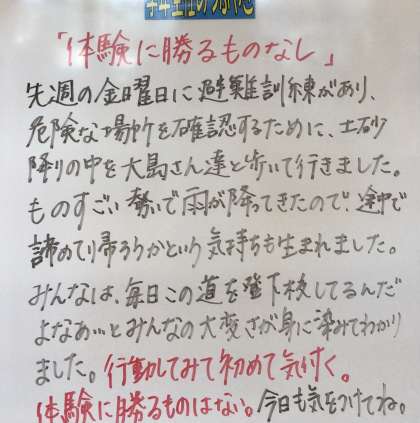 「体験に勝るものなし」
先週の金曜日に避難訓練があり、
危険な場所を確認するために、土砂
降りの中を大島さん達と歩いて行きました。
ものすごい勢いで雨が降ってきたので、途中で
諦めて帰ろうかという気持ちも生まれました。
みんなは、毎日この道を登下校してるんだ
よなあ…とみんなの大変さが身に染みてわかり
ました。行動してみて初めて気付く。
体験に勝るものはない。今日も気をつけてね。